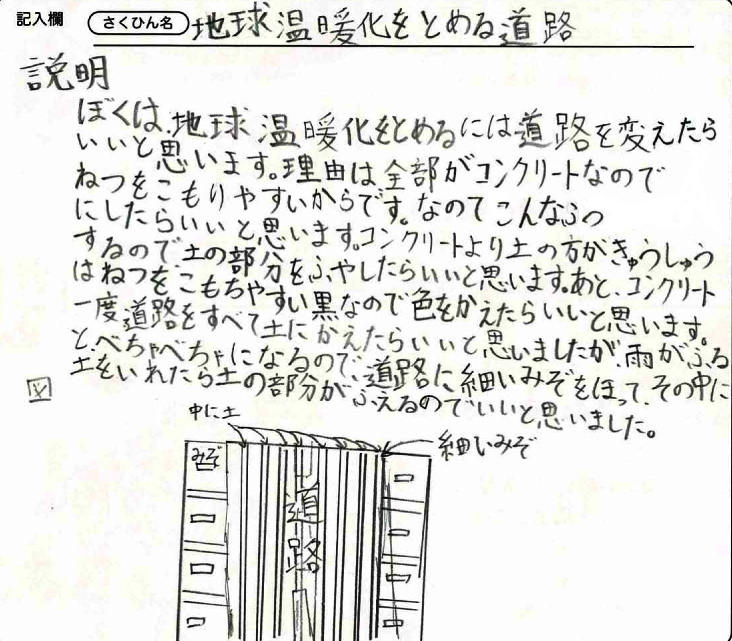 記入欄
さくひん名
地球温暖化をとめる道路
説明
ぼくは、地球温暖化をとめるには道路を変えたら
いいと思います。理由は全部がコンクリートなので
ねつをこもりやすいからです。なのでこんなふつ
にしたらいいと思います。コンクリートより土の方がきゅうしゅう
するので土の部分をふやしたらいいと思います。あと、コンクリート
はねつをこもちゃすい黒なので色をかえたらいいと思います。
一度道路をすべて土にかえたらいいと思いましたが、雨がふる
とべちゃべちゃになるので、道路に細いみぞをほって、その中に
土をいれたら土の部分がふえるのでいいと思いました。
図
中に土
細いみぞ
みぞ
道路